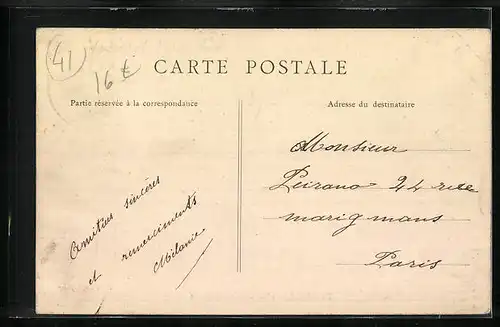 41
16 €
CARTE POSTALE
Partie réservée à la correspondance
Adresse du destinataire
Amitiés sincères
et remerciements
Mélanie
Monsieur
Peirano 24 rue
marigmans
Paris